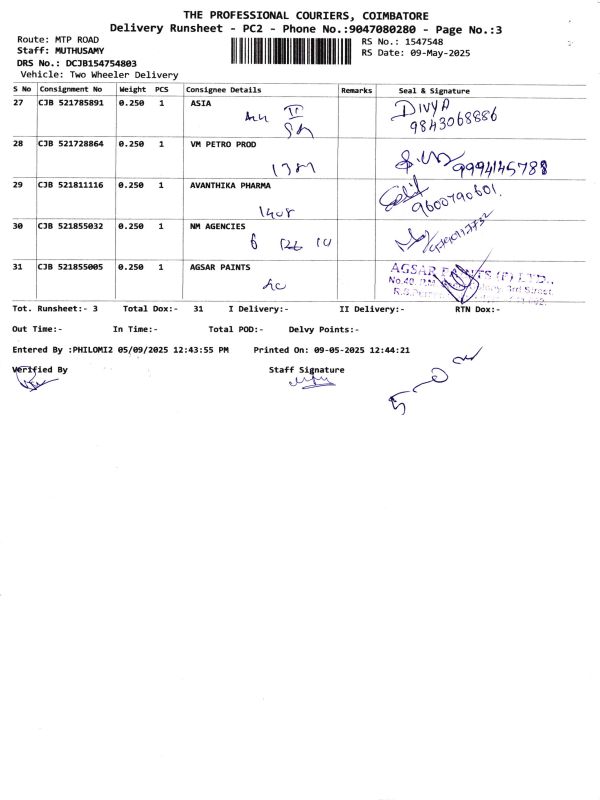 THE PROFESSIONAL COURIERS, COIMBATORE
Delivery Runsheet - PC2 - Phone No.:9047080280 - Page No.:3
Route: MTP ROAD
RS No.: 1547548
Staff: MUTHUSAMY
RS Date: 09-May-2025
DRS No.: DCJB154754803
Vehicle: Two Wheeler Delivery
S No Consignment No Weight PCS Consignee Details Remarks Seal & Signature
27 CJB 521785891 0.250 1 ASIA DIVYA
II
9843068886
28 CJB 521728864 0.250 1 VM PETRO PROD
9994145788
29 CJB 521811116 0.250 1 AVANTHIKA PHARMA
9600790601
1408
30 CJB 521855032 0.250 1 NM AGENCIES
31 CJB 521855005 0.250 1 AGSAR PAINTS AGSAR PAINTS (P) LTD.,
3rd Street,
Tot. Runsheet:- 3 Total Dox:- 31 I Delivery:- II Delivery:- RTN Dox:-
Out Time:- In Time:- Total POD:- Delvy Points:-
Entered By :PHILOMI2 05/09/2025 12:43:55 PM Printed On: 09-05-2025 12:44:21
Verified By Staff Signature